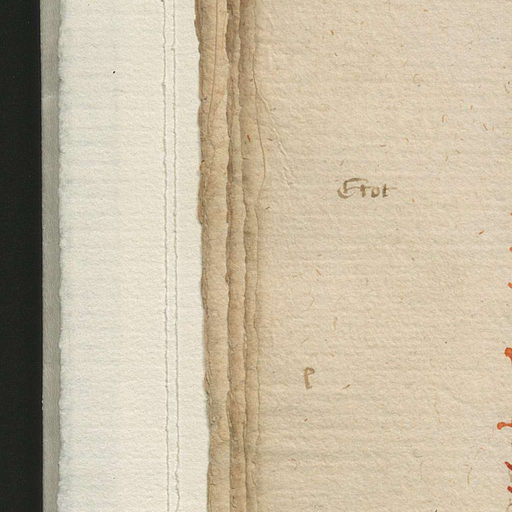 Etot
p